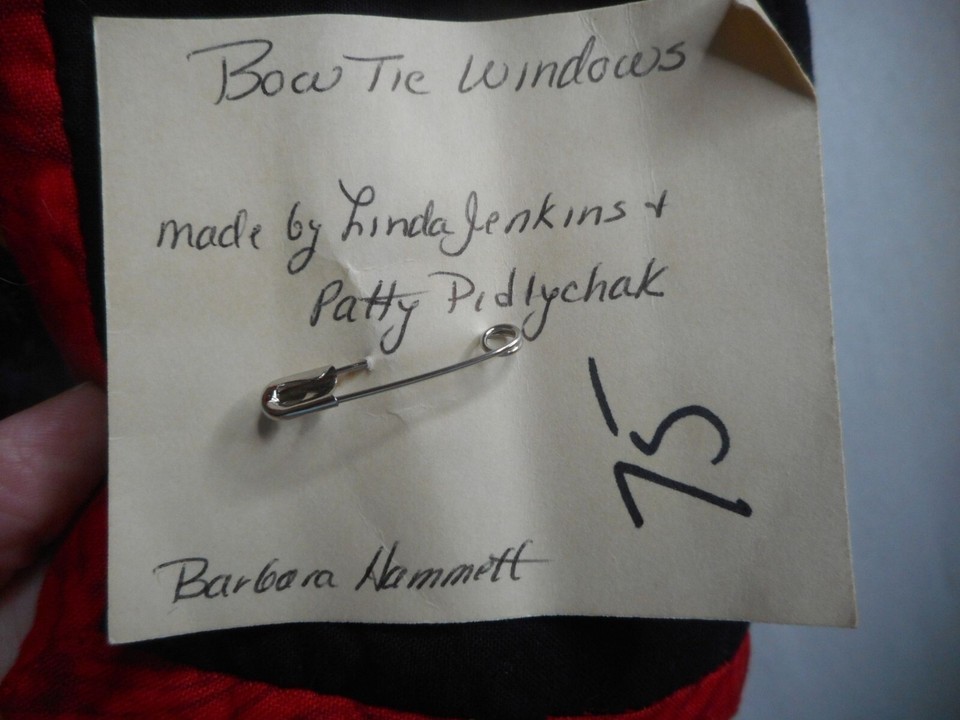 Bow Tie Windows
made by Linda Jenkins +
Patty Pidlychak
75
Barbara Hammett